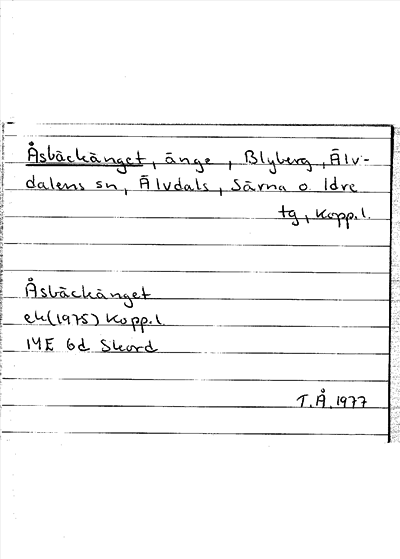 Åsbäckänget, änge, Blyberg, Älv-
dalens sn, Älvdals, Särna o Idre
tg, Kopp.l.
Åsbäckänget
ek(1975) Kopp.l.
14E 6d Skord
T.Å. 1977